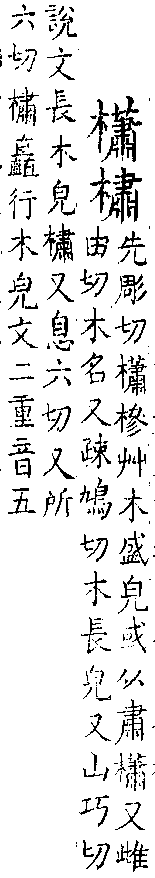 櫹橚
先彫切櫹槮艸木盛皃或从肅櫹又雌
由切木名又疎鳩切木長皃又山巧切
說文長木皃橚又息六切又所
六切橚矗行木皃文二重音五